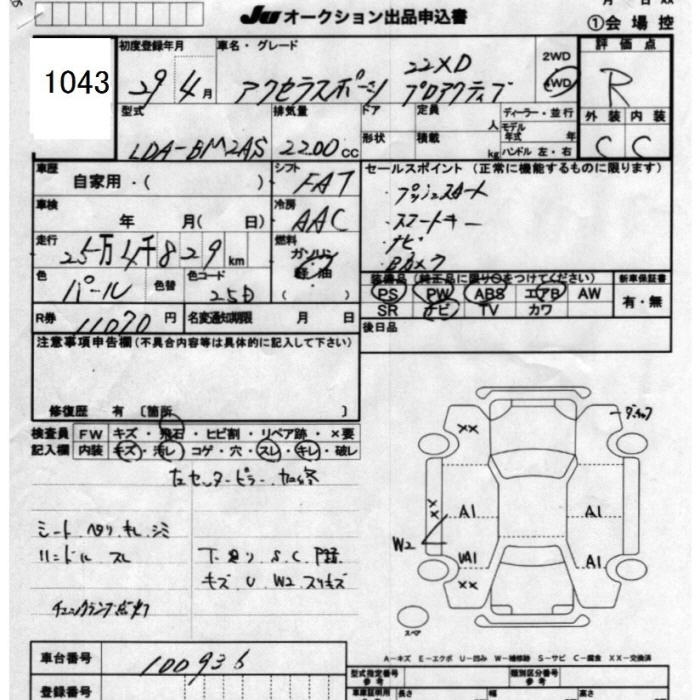 Ju オークション出品申込書
①会場控
1043
初度登録年月 29 4月
車名・グレード アクセラスポーツ 22XD プロアクティブ
2WD
4WD
評価点 R
型式 LDA-BM2AS
排気量 2200cc
ドア 定員 人
ディーラー・並行
モデル年式 年
形状 積載 kg
ハンドル 左・右
外装 内装
C C
車歴 自家用・( )
シフト FAT
セールスポイント (正常に機能するものに限ります)
・プッシュスタート
・スマートキー
・ナビ
・Bカメラ
車検 年 月( 日)
冷房 AAC
走行 25万4千829km
燃料 ガソリン・軽油・( )
色 パール 色替
色コード 25D
装備品 (純正品に限り○をつけてください)
新車保証書
PS PW ABS エアB AW
有・無
SR ナビ TV カワ
R券 11070円
名変通知期限 月 日
後日品
注意事項申告欄(不具合内容等は具体的に記入して下さい)
修復歴 有 [箇所 ]
検査員記入欄
FW キズ・飛石・ヒビ割・リペア跡・×要
内装 キズ・汚レ・コゲ・穴・スレ・キレ・破レ
左センターピラー 加修
シート ヘタリ キレ シミ
ハンドル スレ
下廻り S.C 凹跡
キズ U W2 スリキズ
チェックランプ点灯
XX
XX
A1 A1
W2
UA1 A1
XX
スペア
A-キズ E-エクボ U-凹み W-補修跡 S-サビ C-腐食 XX-交換済
車台番号 100936
登録番号
型式指定番号 参考
類別区分番号 参考
車庫証明用 長さ 幅 高さ